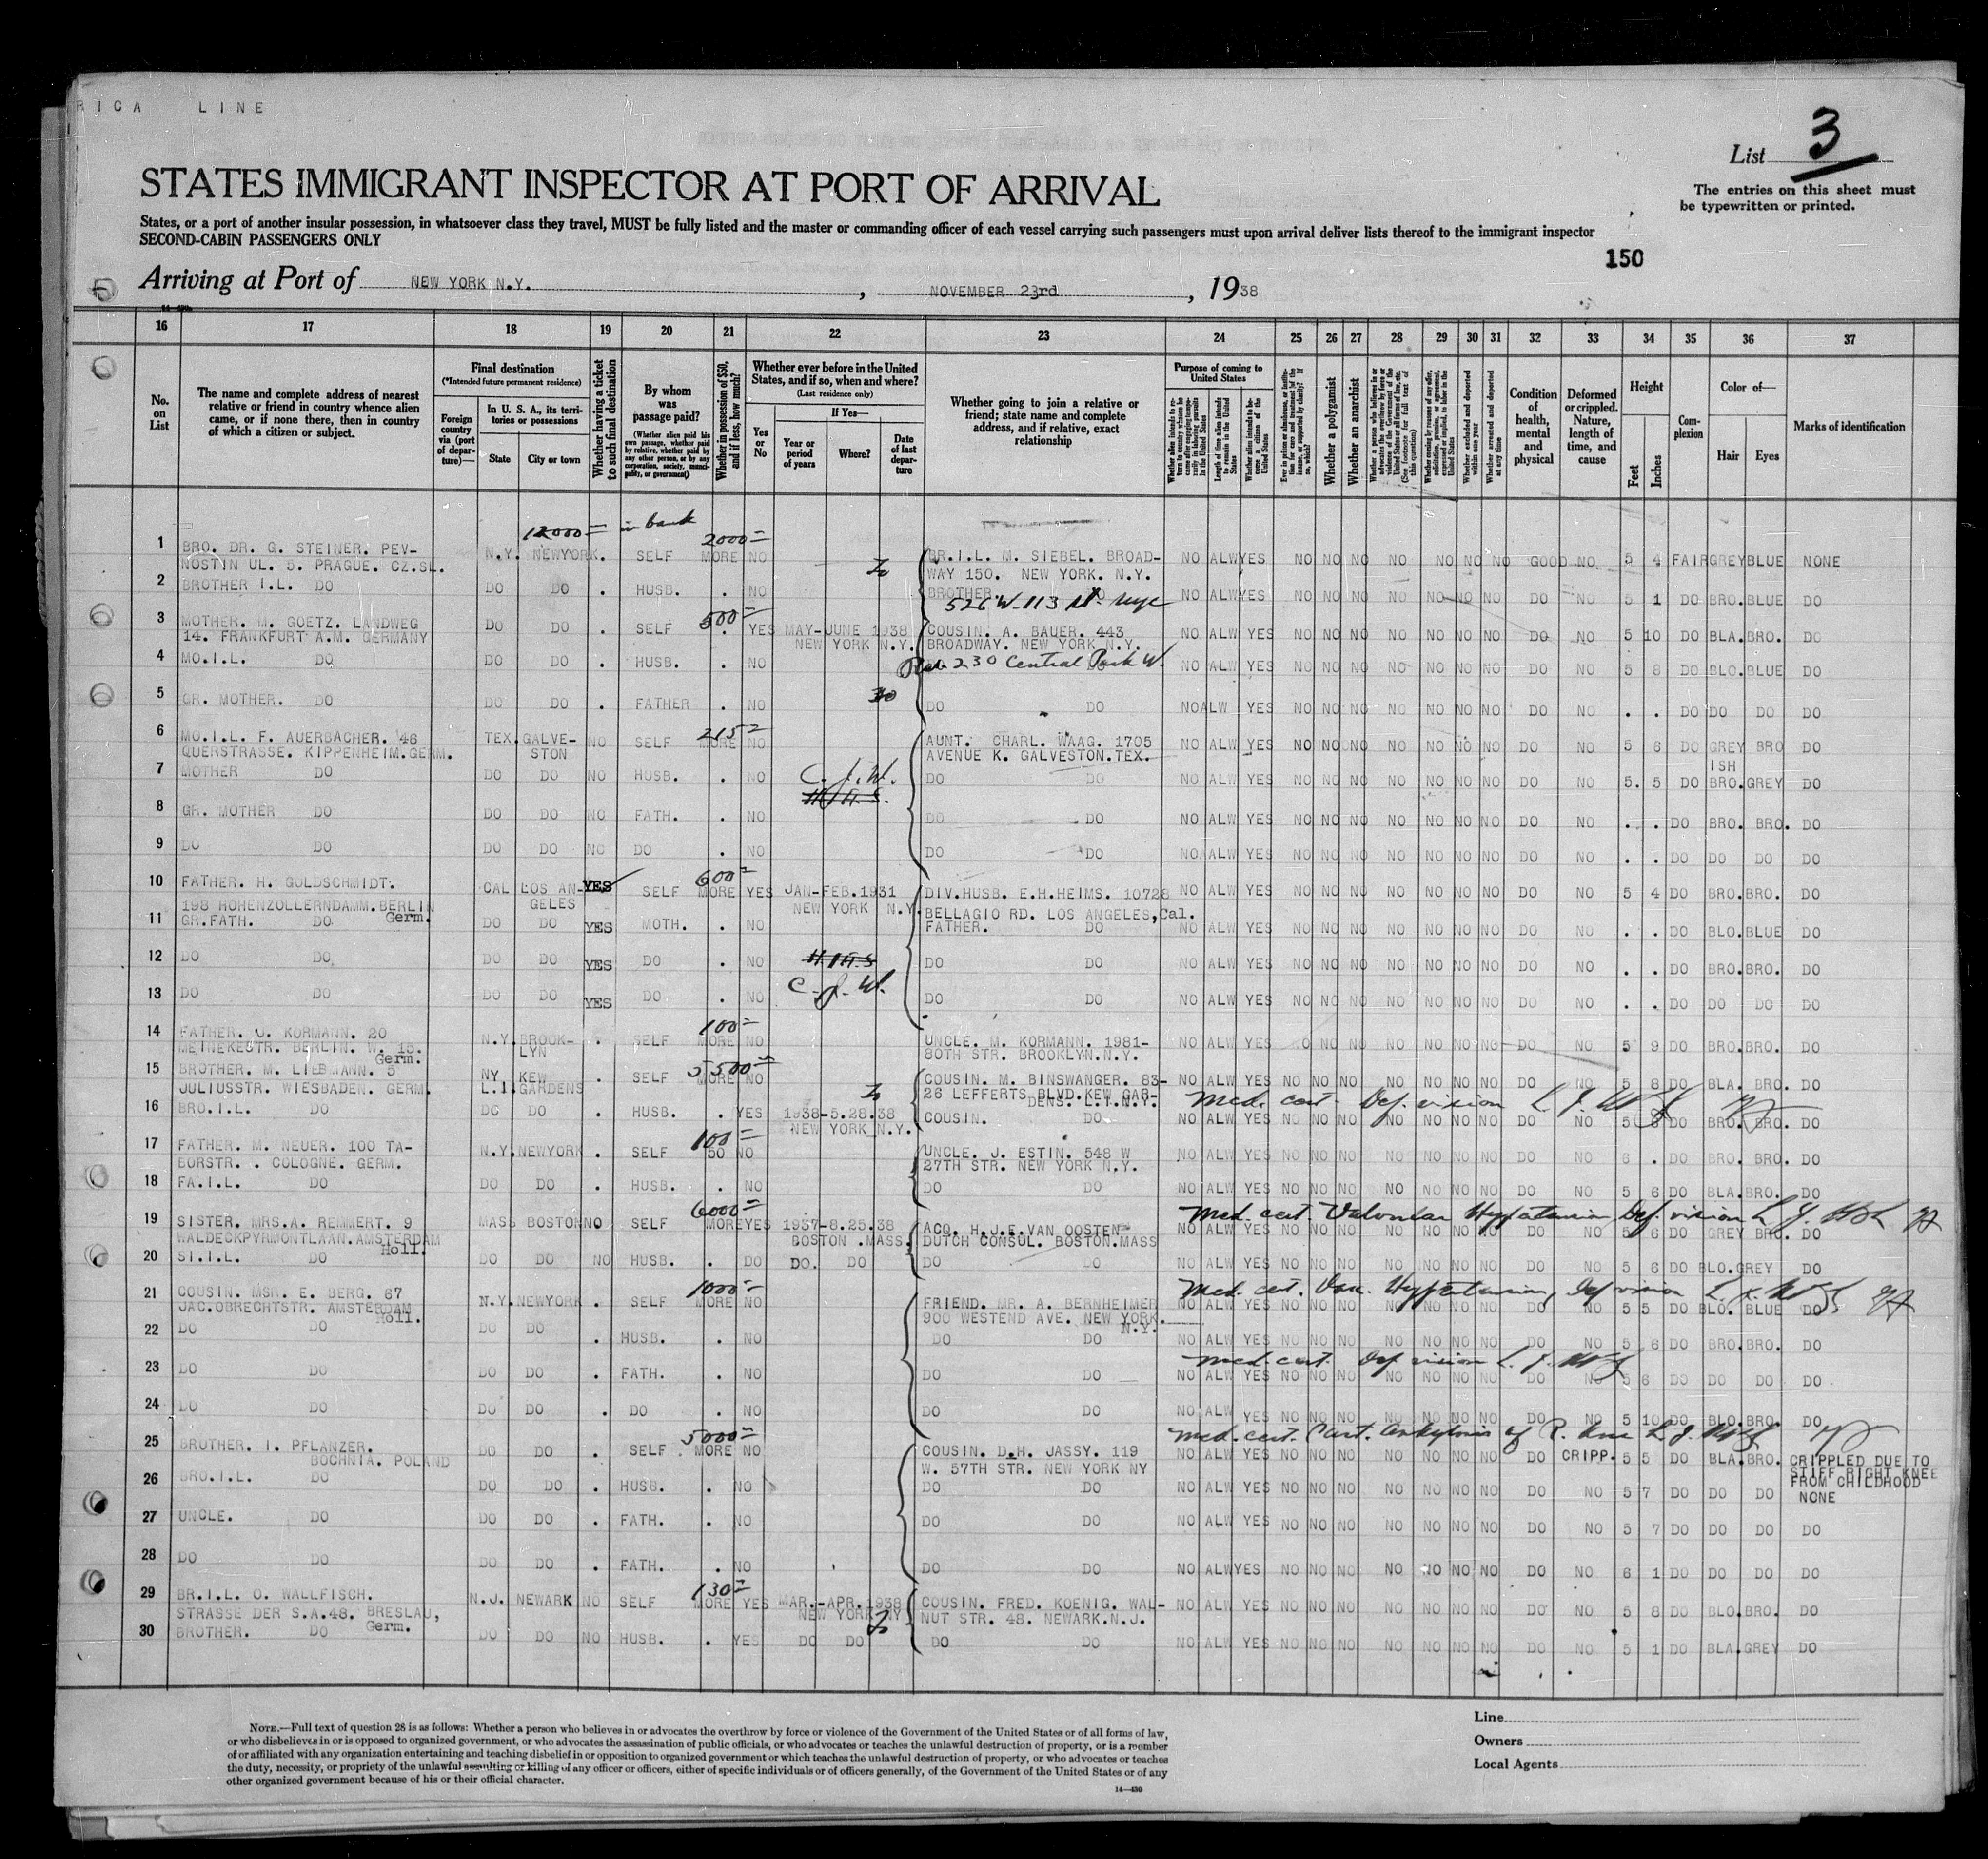 RICA LINE
List 3
STATES IMMIGRANT INSPECTOR AT PORT OF ARRIVAL
The entries on this sheet must
be typewritten or printed.
States, or a port of another insular possession, in whatsoever class they travel, MUST be fully listed and the master or commanding officer of each vessel carrying such passengers must upon arrival deliver lists thereof to the immigrant inspector
SECOND-CABIN PASSENGERS ONLY
150
Arriving at Port of NEW YORK N.Y. , NOVEMBER 23rd , 1938
16 17 18 19 20 21 22 23 24 25 26 27 28 29 30 31 32 33 34 35 36 37
No. on List
The name and complete address of nearest
relative or friend in country whence alien
came, or if none there, then in country
of which a citizen or subject.
Final destination
(*Intended future permanent residence)
Foreign country via (port of departure)—
In U. S. A., its territories or possessions
State City or town
Whether having a ticket to such final destination
By whom was passage paid?
(Whether alien paid his own passage, whether paid by relative, whether paid by any other person, or by any corporation, society, municipality, or government)
Whether in possession of $50, and if less, how much?
Whether ever before in the United States, and if so, when and where?
(Last residence only)
Yes or No
If Yes—
Year or period of years
Where?
Date of last departure
Whether going to join a relative or
friend; state name and complete
address, and if relative, exact
relationship
Purpose of coming to United States
Whether a polygamist
Whether an anarchist
Condition of health, mental and physical
Deformed or crippled. Nature, length of time, and cause
Height
Feet Inches
Complexion
Color of—
Hair Eyes
Marks of identification
12000= in bank 2000=
1 BRO. DR. G. STEINER. PEV- N.Y. NEWYORK. . SELF MORE NO BR.I.L. M. SIEBEL. BROAD- NO ALW YES NO NO NO NO NO NO NO GOOD NO 5 4 FAIR GREY BLUE NONE
NOSTIN UL. 5. PRAGUE. CZ.SL. WAY 150. NEW YORK. N.Y.
2 BROTHER I.L. DO DO DO . HUSB. . NO BROTHER. DO NO ALW YES NO NO NO NO NO NO NO DO NO 5 1 DO BRO. BLUE DO
526 W-113 St. nyc
500=
3 MOTHER. M. GOETZ. LANDWEG DO DO . SELF . YES MAY-JUNE 1938 COUSIN. A. BAUER. 443 NO ALW YES NO NO NO NO NO NO NO DO NO 5 10 DO BLA. BRO. DO
14. FRANKFURT A.M. GERMANY NEW YORK N.Y. BROADWAY. NEW YORK N.Y.
4 MO.I.L. DO DO DO . HUSB. . NO 230 Central Park W. NO ALW YES NO NO NO NO NO NO NO DO NO 5 8 DO BLO. BLUE DO
5 GR. MOTHER. DO DO DO . FATHER . NO DO DO NO ALW YES NO NO NO NO NO NO NO DO NO . . DO DO DO DO
215=
6 MO.I.L. F. AUERBACHER. 46 TEX. GALVE- NO SELF MORE NO AUNT. CHARL. WAAG. 1705 NO ALW YES NO NO NO NO NO NO NO DO NO 5 6 DO GREY BRO DO
QUERSTRASSE. KIPPENHEIM.GERM. STON AVENUE K. GALVESTON.TEX. ISH
7 MOTHER DO DO DO NO HUSB. . NO C. J. W. DO DO NO ALW YES NO NO NO NO NO NO NO DO NO 5. 5 DO BRO. GREY DO
8 GR. MOTHER DO DO DO NO FATH. . NO DO DO NO ALW YES NO NO NO NO NO NO NO DO NO . . DO BRO. BRO. DO
9 DO DO DO DO NO DO . NO DO DO NO ALW YES NO NO NO NO NO NO NO DO NO . . DO DO DO DO
600=
10 FATHER. H. GOLDSCHMIDT. CAL LOS AN- YES SELF MORE YES JAN-FEB.1931 DIV.HUSB. E.H.HEIMS. 10728 NO ALW YES NO NO NO NO NO NO NO DO NO 5 4 DO BRO. BRO. DO
198 HOHENZOLLERNDAMM.BERLIN GELES NEW YORK N.Y. BELLAGIO RD. LOS ANGELES,Cal.
11 GR.FATH. DO Germ. DO DO YES MOTH. . NO FATHER. DO NO ALW YES NO NO NO NO NO NO NO DO NO . . DO BLO. BLUE DO
12 DO DO DO DO YES DO . NO DO DO NO ALW YES NO NO NO NO NO NO NO DO NO . . DO BRO. BRO. DO
C. J. W.
13 DO DO DO DO YES DO . NO DO DO NO ALW YES NO NO NO NO NO NO NO DO NO . . DO DO DO DO
100=
14 FATHER. J. KORMANN. 20 N.Y. BROOK- . SELF MORE NO UNCLE. M. KORMANN. 1981- NO ALW YES NO NO NO NO NO NO NO DO NO 5 9 DO BRO. BRO. DO
MEINEKESTR. BERLIN. W. 15. Germ. LYN 80TH STR. BROOKLYN.N.Y.
5500=
15 BROTHER. M. LIEBMANN. 5 NY. KEW . SELF MORE NO COUSIN. M. BINSWANGER. 83- NO ALW YES NO NO NO NO NO NO NO DO NO 5 8 DO BLA. BRO. DO
JULIUSSTR. WIESBADEN. GERM. L.I. GARDENS 26 LEFFERTS BLVD.KEW GAR-
DENS. L.I.N.Y. Med. cert. Def. vision
16 BRO.I.L. DO DO DO . HUSB. . YES 1938-5.28.38 COUSIN. DO NO ALW YES NO NO NO NO NO NO NO DO NO 5 DO BRO. BRO. DO
NEW YORK N.Y.
100=
17 FATHER. M. NEUER. 100 TA- N.Y. NEWYORK . SELF 50 NO UNCLE. J. ESTIN. 548 W NO ALW YES NO NO NO NO NO NO NO DO NO 6 . DO BRO. BRO. DO
BORSTR. . COLOGNE. GERM. 27TH STR. NEW YORK N.Y.
18 FA.I.L. DO DO DO . HUSB. . NO DO DO NO ALW YES NO NO NO NO NO NO NO DO NO 5 6 DO BLA. BRO. DO
6000= Med. cert. Valvular Hypertension, Def. vision
19 SISTER. MRS.A. REMMERT. 9 MASS BOSTON NO SELF MORE YES 1937-8.25.38 ACQ. H.J.E.VAN OOSTEN- NO ALW YES NO NO NO NO NO NO NO DO NO 5 6 DO GREY BRO. DO
WALDECKPYRMONTLAAN.AMSTERDAM Holl. BOSTON .MASS. DUTCH CONSOL. BOSTON.MASS
20 SI.I.L. DO DO DO NO HUSB. . DO DO. DO DO DO NO ALW YES NO NO NO NO NO NO NO DO NO 5 6 DO BLO. GREY DO
1000= Med. cert. Hypertension, Def vision
21 COUSIN. MSR. E. BERG. 67 N.Y. NEWYORK . SELF MORE NO FRIEND. MR. A. BERNHEIMER NO ALW YES NO NO NO NO NO NO NO DO NO 5 5 DO BLO. BLUE DO
JAC.OBRECHTSTR. AMSTERDAM Holl. 900 WESTEND AVE. NEW YORK. N.Y.
22 DO DO DO DO . HUSB. . NO DO DO NO ALW YES NO NO NO NO NO NO NO DO NO 5 6 DO BRO. BRO. DO
Med. cert. Def vision
23 DO DO DO DO . FATH. . NO DO DO NO ALW YES NO NO NO NO NO NO NO DO NO 5 6 DO DO DO DO
24 DO DO DO DO . DO . NO DO DO NO ALW YES NO NO NO NO NO NO NO DO NO 5 10 DO BLO. BRO. DO
5000= Med. cert. ankylosis of R. knee
25 BROTHER. I. PFLANZER. DO DO . SELF . MORE NO COUSIN. D.H. JASSY. 119 NO ALW YES NO NO NO NO NO NO NO DO CRIPP. 5 5 DO BLA. BRO. CRIPPLED DUE TO
BOCHNIA. POLAND W. 57TH STR. NEW YORK NY STIFF RIGHT KNEE
FROM CHILDHOOD
26 BRO.I.L. DO DO DO . HUSB. . NO DO DO NO ALW YES NO NO NO NO NO NO NO DO NO 5 7 DO DO DO NONE
27 UNCLE. DO DO DO . FATH. . NO DO DO NO ALW YES NO NO NO NO NO NO NO DO NO 5 7 DO DO DO DO
28 DO DO DO DO . FATH. . NO DO DO NO ALW YES NO NO NO NO NO NO NO DO NO 6 1 DO DO DO DO
130=
29 BR.I.L. O. WALLFISCH. N.J. NEWARK NO SELF MORE YES MAR.-APR.1938 COUSIN. FRED. KOENIG. WAL- NO ALW YES NO NO NO NO NO NO NO DO NO 5 8 DO BLO. BRO. DO
STRASSE DER S.A.48. BRESLAU, Germ. NEW YORK NY NUT STR. 48. NEWARK.N.J.
30 BROTHER. DO DO DO NO HUSB. . YES DO DO DO DO NO ALW YES NO NO NO NO NO NO NO DO NO 5 1 DO BLA. GREY DO
NOTE.—Full text of question 28 is as follows: Whether a person who believes in or advocates the overthrow by force or violence of the Government of the United States or of all forms of law,
or who disbelieves in or is opposed to organized government, or who advocates the assassination of public officials, or who advocates or teaches the unlawful destruction of property, or is a member
of or affiliated with any organization entertaining and teaching disbelief in or opposition to organized government or which teaches the unlawful destruction of property, or who advocates or teaches
the duty, necessity, or propriety of the unlawful assaulting or killing of any officer or officers, either of specific individuals or of officers generally, of the Government of the United States or of any
other organized government because of his or their official character.
14—430
Line
Owners
Local Agents